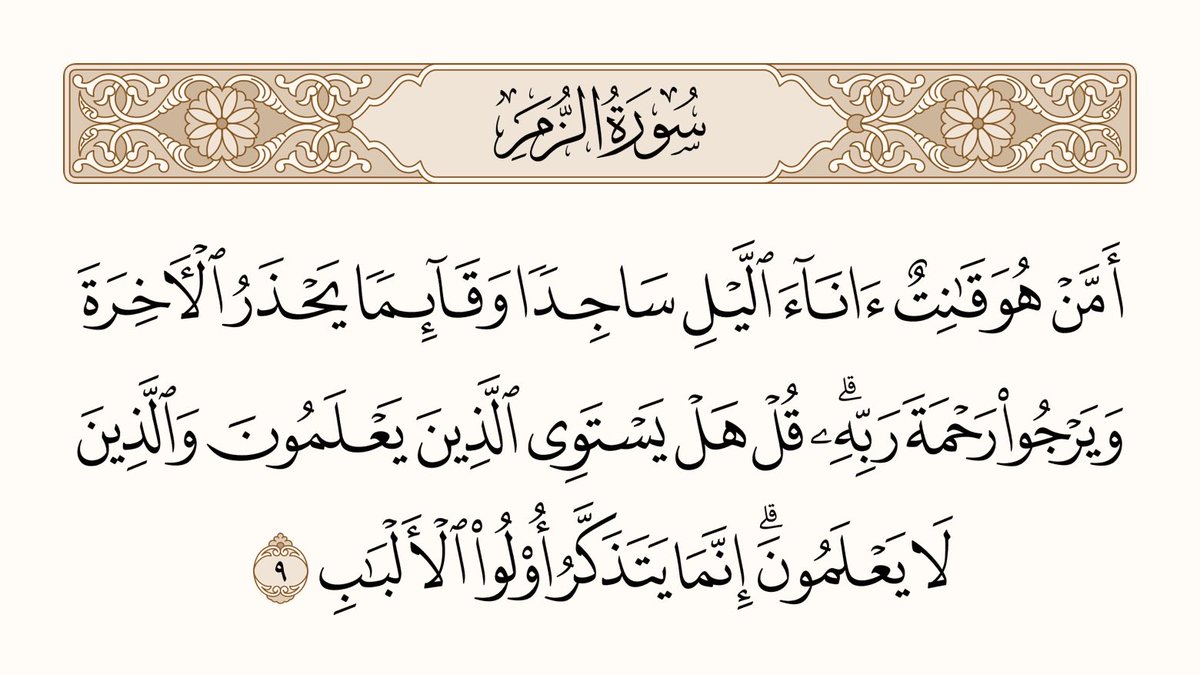 سُورَةُ الزُّمَرِ
أَمَّنۡ هُوَ قَٰنِتٌ ءَانَآءَ ٱلَّيۡلِ سَاجِدٗا وَقَآئِمٗا يَحۡذَرُ ٱلۡأٓخِرَةَ
وَيَرۡجُواْ رَحۡمَةَ رَبِّهِۦۗ قُلۡ هَلۡ يَسۡتَوِي ٱلَّذِينَ يَعۡلَمُونَ وَٱلَّذِينَ
لَا يَعۡلَمُونَۗ إِنَّمَا يَتَذَكَّرُ أُوْلُواْ ٱلۡأَلۡبَٰبِ ٩